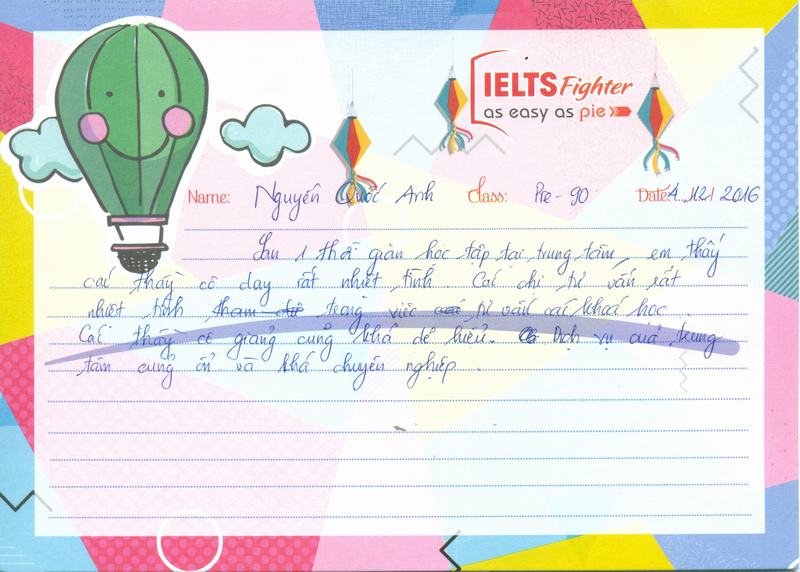 IELTS Fighter
as easy as pie
Name: Nguyễn Quốc Anh Class: Pre - 90 Date: 4 /12/ 2016
Sau 1 thời gian học tập tại trung tâm, em thấy
các thầy cô dạy rất nhiệt tình. Các chị tư vấn rất
nhiệt tình trong việc tư vấn các khoá học.
Các thầy cô giảng cũng khá dễ hiểu. Dịch vụ của trung
tâm cũng ổn và khá chuyên nghiệp.